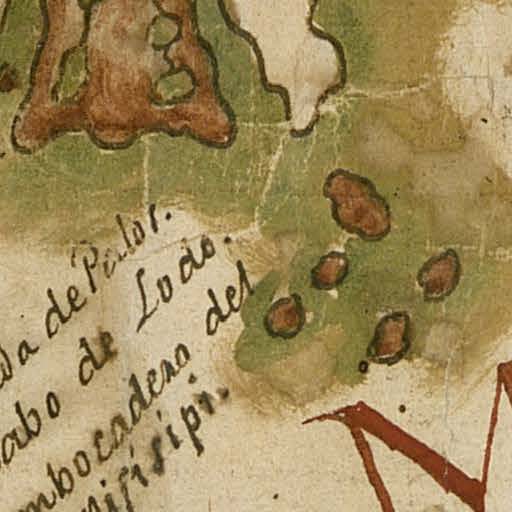 da de Palos.
Cabo de Lodo.
Embocadero del
Misisipi.